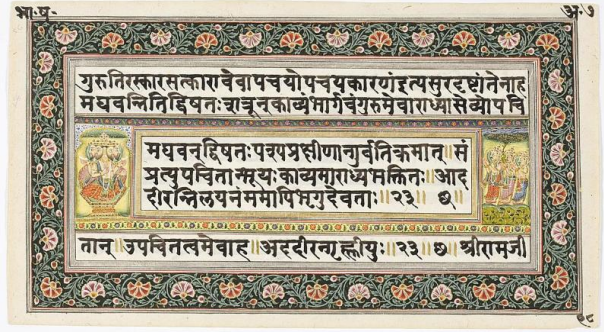 भा·ष·
अ·७
गुरुतिरस्कारसत्कारावेवापचयोपचयकारणंइत्यसुरदृष्टांतेनाह
मघवन्नितिद्विषतःशत्रूनकाव्यंभार्गवंगुरुमेवाराध्यासेव्योपचि
मघवनद्विषतःपश्यप्रक्षीणान्गुर्वतिक्रमात्॥सं
प्रत्युपचितान्भूयःकाव्यमाराध्यभक्तितः॥आद
दीरन्निलयनंममापिभृगुदेवताः॥२३॥ ७॥
तान्॥उपचितत्वमेवाह॥आददीरन्गृह्णीयुः॥२३॥ ७॥ श्रीरामजी